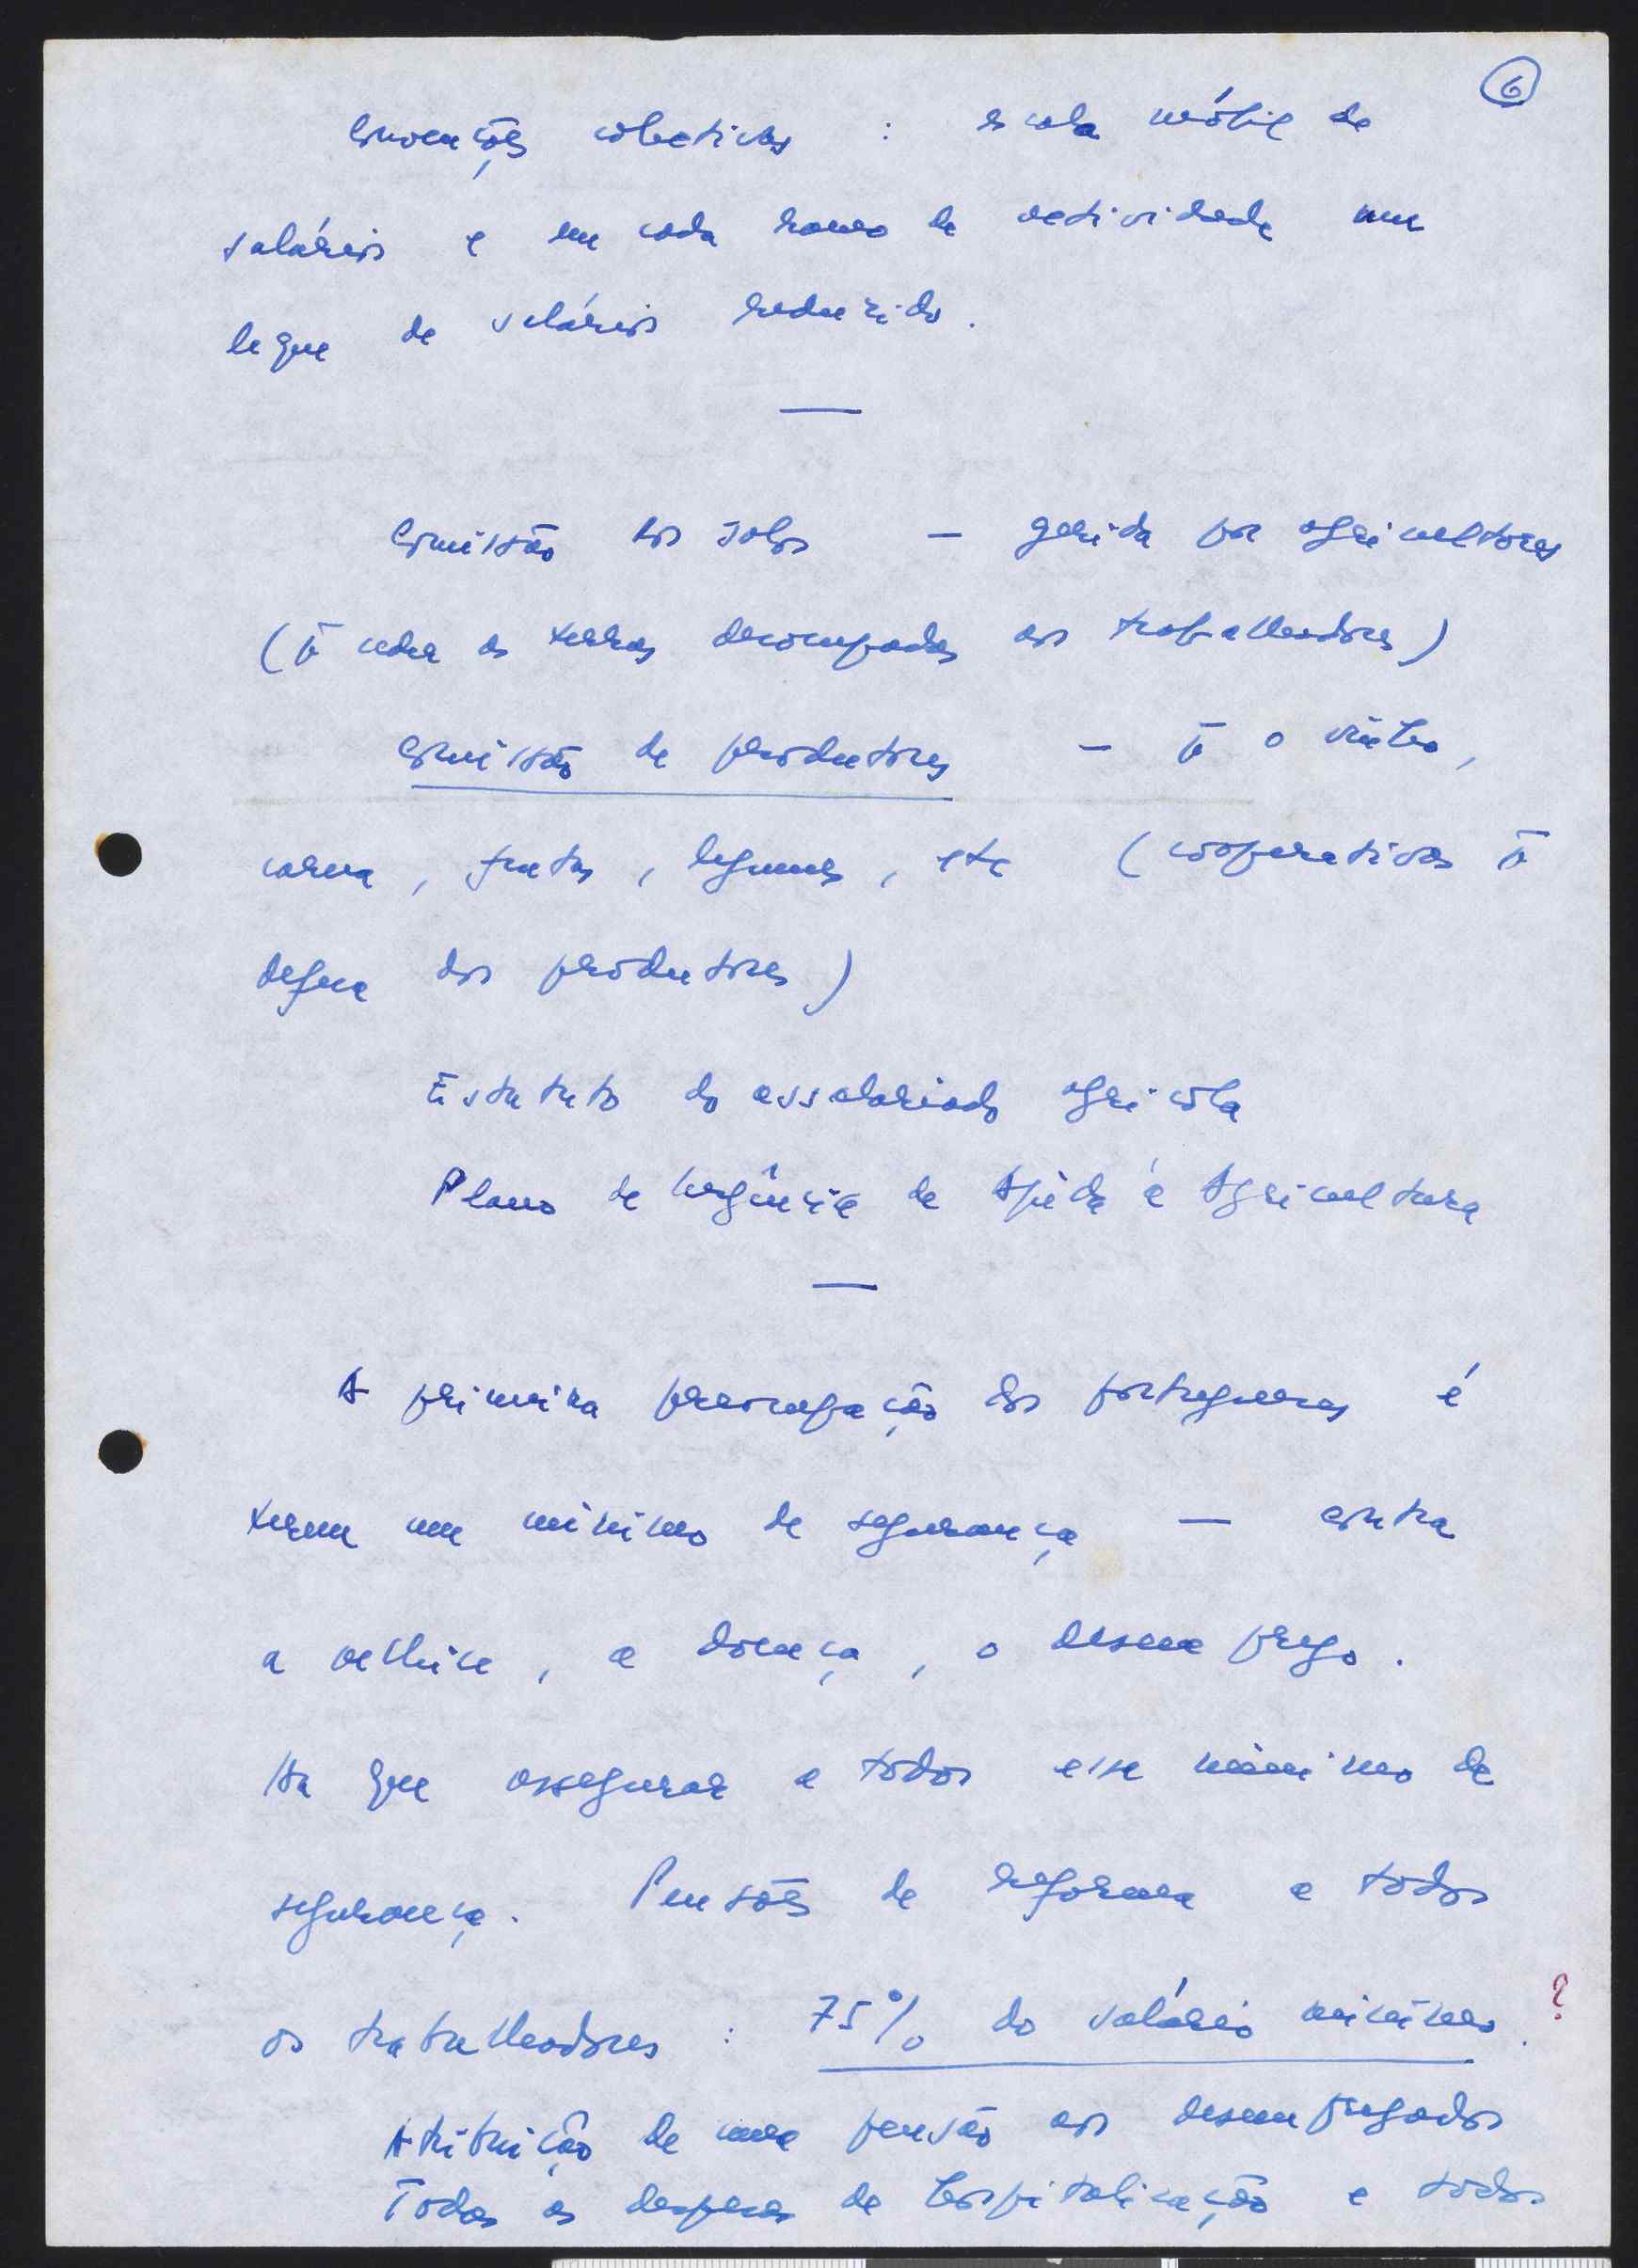 6
Convenções colectivas : escala móbil de
salários e em cada ramo de actividade um
leque de salários reduzido.
—
Comissão dos solos — gerida por agricultores
(p̄ ceder as terras desocupadas aos trabalhadores)
Comissão de produtores — p̄ o vinho,
carne, frutas, legumes, etc (cooperativas p̄
defesa dos produtores)
Estatuto do assalariado agricola
Plano de Urgência de Ajuda à Agricultura
—
A primeira preocupação dos portugueses é
terem um minimo de segurança — contra
a velhice, a doença, o desemprego.
Há que assegurar a todos esse minimo de
segurança. Pensões de reforma a todos
os trabalhadores : 75% do salário minimo. ?
Atribuição de uma pensão aos desempregados
Todas as despesas de hospitalização e todos